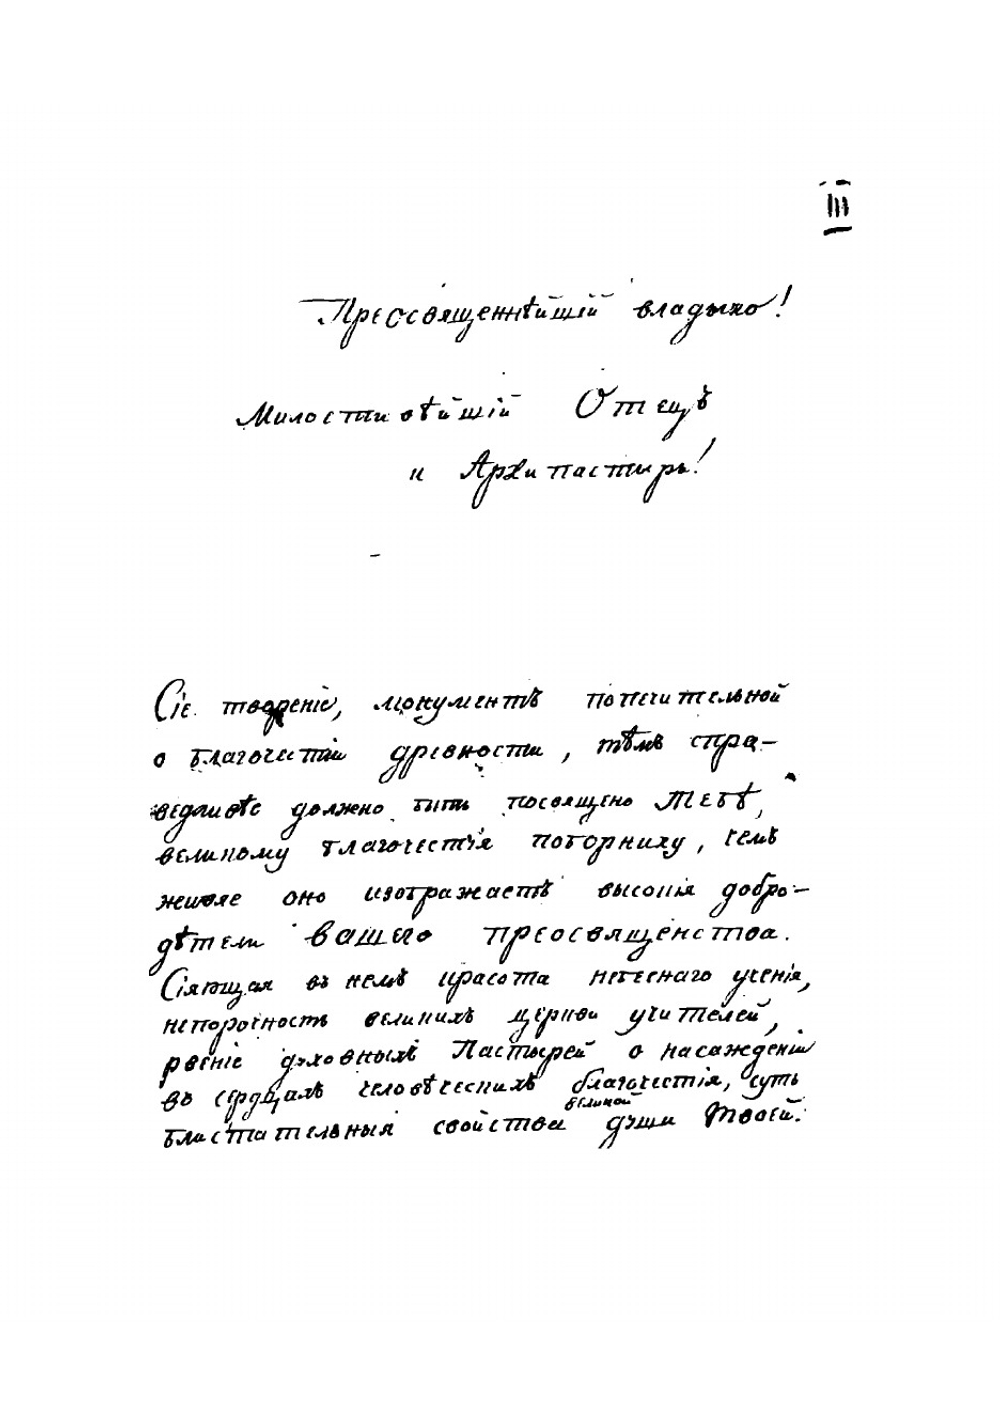 III
Преосвященнѣйшій владыко!
Милостивѣйшій Отецъ
и Архипастырь!
Сіе творенїе, монументъ попечительной
о благочестіи древности, тѣмъ спра-
ведливѣе должно быть посвящено Тебѣ,
великому благочестія поборнику, чемъ
живяе оно изображаетъ высокія добро-
дѣтели вашего преосвященства.
Сіяющая въ немъ красота небеснаго ученія,
непорочность великихъ церкви учителей,
рвеніе духовныхъ Пастырей о насажденіи
въ сердцахъ человѣческихъ благочестія, суть
великой
блистательныя свойства души Твоей.